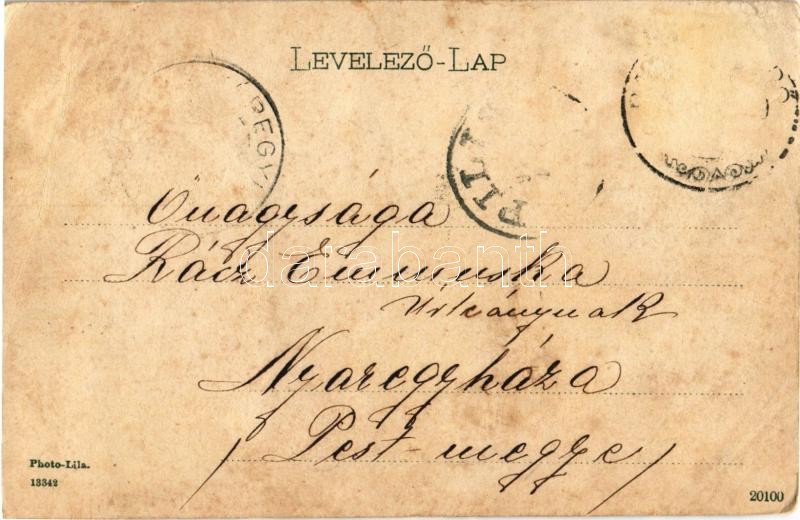 LEVELEZŐ-LAP
REGY
PILIS
Őnagysága
Rácz Emmuska
Úrleánynak
Nyáregyháza
/ Pest-megye /
darabanth
Photo-Lila.
13342
20100